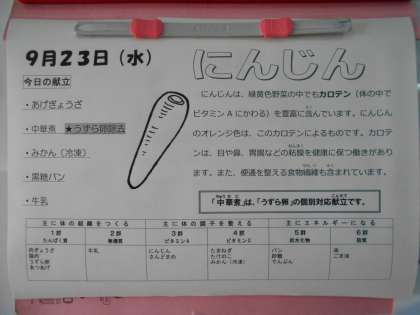 9月23日（水）
にんじん
今日の献立
・あげぎょうざ
・中華煮 ★うずら卵除去
・みかん（冷凍）
・黒糖パン
・牛乳
にんじんは、緑黄色野菜の中でもカロテン（体の中で
ビタミンAにかわる）を豊富に含んでいます。にんじん
のオレンジ色は、このカロテンによるものです。カロテ
ンは、目や鼻、胃腸などの粘膜を健康に保つ働きがあり
ます。また、便通を整える食物繊維も含まれています。
「中華煮」は、「うずら卵」の個別対応献立です。
主に体の組織をつくる 主に体の調子を整える 主にエネルギーになる
1群 2群 3群 4群 5群 6群
たんぱく質 無機質 ビタミンA ビタミンC 炭水化物 脂質
肉ぎょうざ 牛乳 にんじん たまねぎ パン 油
豚肉 さんどまめ たけのこ 砂糖 ごま油
うずら卵 みかん（冷凍） でんぷん
あつあげ